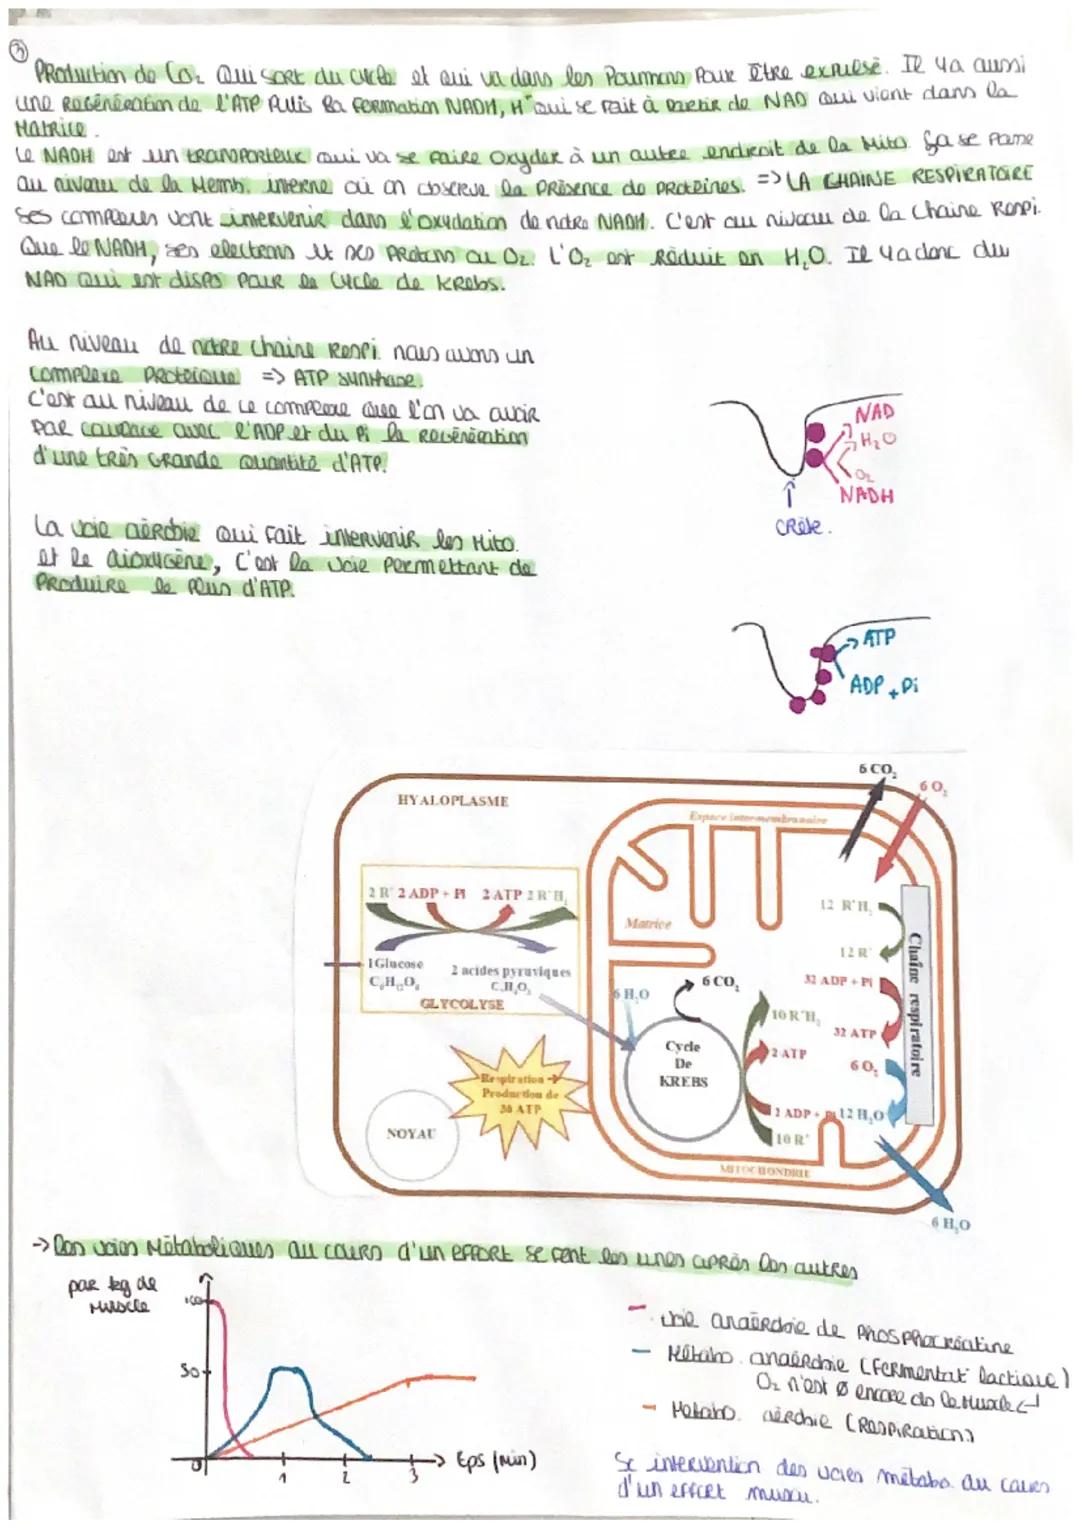 ③
Production de CO₂ qui sort du cycle et qui va dans les Poumons Pour être expulsé. Il ya aussi
une Régénération de l'ATP Puis la formation NADH, H⁺ qui se fait à partir de NAD qui vient dans la
Matrice.
Le NADH est un transporteur qui va se faire oxyder à un autre endroit de la Mito. Ça se passe
au niveau de la Memb. interne où on observe la Présence de Protéines. => LA CHAINE RESPIRATOIRE
Ses complexes vont intervenir dans l'oxydation de notre NADH. C'est au niveau de la Chaine Respi.
Que le NADH, ses electrons et ses Protons au O₂. L'O₂ est Réduit en H₂O. Il ya donc du
NAD qui est dispo Pour le Cycle de Krebs.
Au niveau de notre Chaine Respi. nous avons un
Complexe Protéique => ATP Synthase.
C'est au niveau de ce complexe que l'on va avoir
par couplage avec l'ADP et du Pi la Régénération
d'une très Grande Quantité d'ATP.
NAD
H₂O
O₂
NADH
Crête.
La voie aérobie qui fait intervenir les Mito.
et le dioxygène, C'est la voie Permettant de
Produire le Plus d'ATP.
ATP
ADP + Pi
6 CO₂
6 O₂
HYALOPLASME
Espace intermembranaire
2 R' 2 ADP + Pi 2 ATP 2 R'H₂
12 R'H₂
Matrice
12 R'
1Glucose
C₆H₁₂O₆
2 acides pyruviques
C₃H₄O₃
GLYCOLYSE
6 H₂O
6 CO₂
32 ADP + Pi
10 R'H₂
32 ATP
Chaîne respiratoire
Cycle
De
KREBS
2 ATP
6 O₂
Respiration →
Production de
36 ATP
2 ADP + Pi
12 H₂O
10 R'
NOYAU
MITOCHONDRIE
6 H₂O
-> Les voies Métaboliques au cours d'un effort se font les unes après les autres
par kg de
Muscle
100
50
0
1
2
3
Eps (min)
- voie anaérobie de Phosphocréatine
- Métabo. anaérobie (Fermentat° lactique)
O₂ n'est Ø encore ds le Muscle
- Métabo. aérobie (Respiration)
Se intervention des voies métabo. au cours
d'un effort muscu.